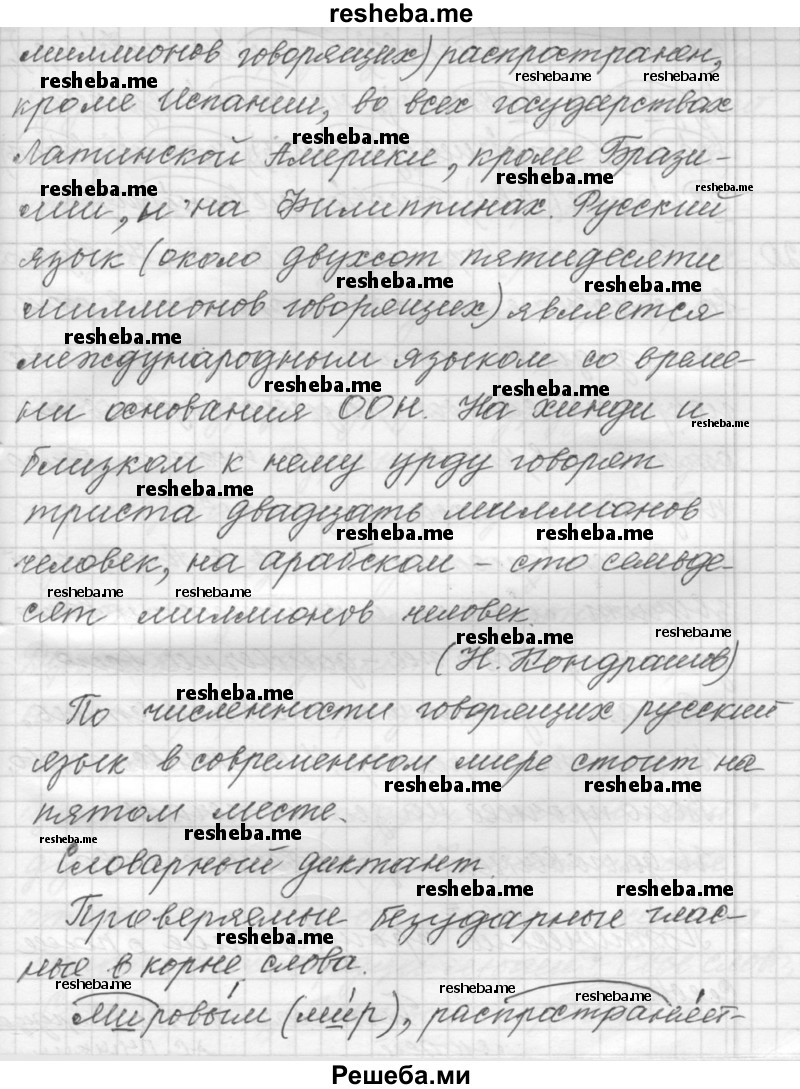 resheba.me
миллионов говорящих) распространен,
resheba.me resheba.me resheba.me
кроме Испании, во всех государствах
resheba.me
Латинской Америки, кроме Брази-
resheba.me resheba.me resheba.me
лии, и на Филиппинах. Русский
язык (около двухсот пятидесяти
resheba.me resheba.me
миллионов говорящих) является
resheba.me
международным языком со време-
resheba.me resheba.me
ни основания ООН. На хинди и
resheba.me
близком к нему урду говорят
resheba.me
триста двадцать миллионов
resheba.me resheba.me
человек, на арабском – сто семьде-
resheba.me resheba.me
сят миллионов человек.
resheba.me resheba.me
(Н. Кондрашов)
resheba.me
По численности говорящих русский
язык в современном мире стоит на
resheba.me resheba.me
пятом месте.
resheba.me resheba.me
Словарный диктант.
resheba.me resheba.me
Проверяемые безударные глас-
resheba.me
ные в корне слова.
resheba.me resheba.me resheba.me
мировы́м (ми́р), распространя́ет-
Решеба.ми